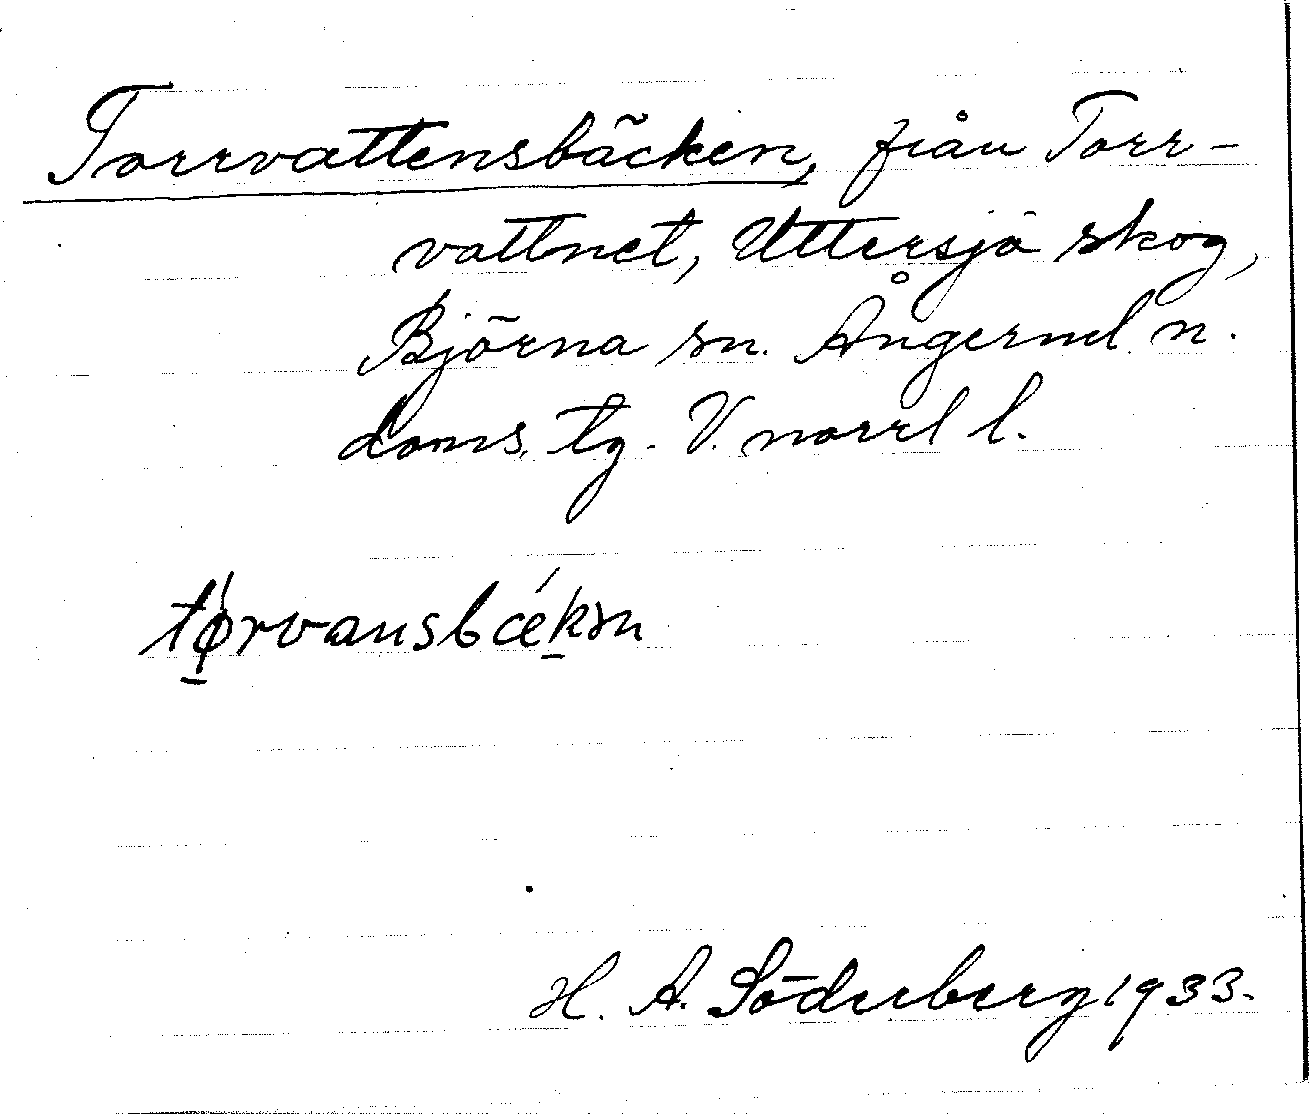 Torrvattensbäcken, från Torr-
vattnet, Uttersjö skog,
Björna sn. Ångerml. n.
doms. tg. V. norrl l.
tørvansbækən
H. A. Söderberg 1933.